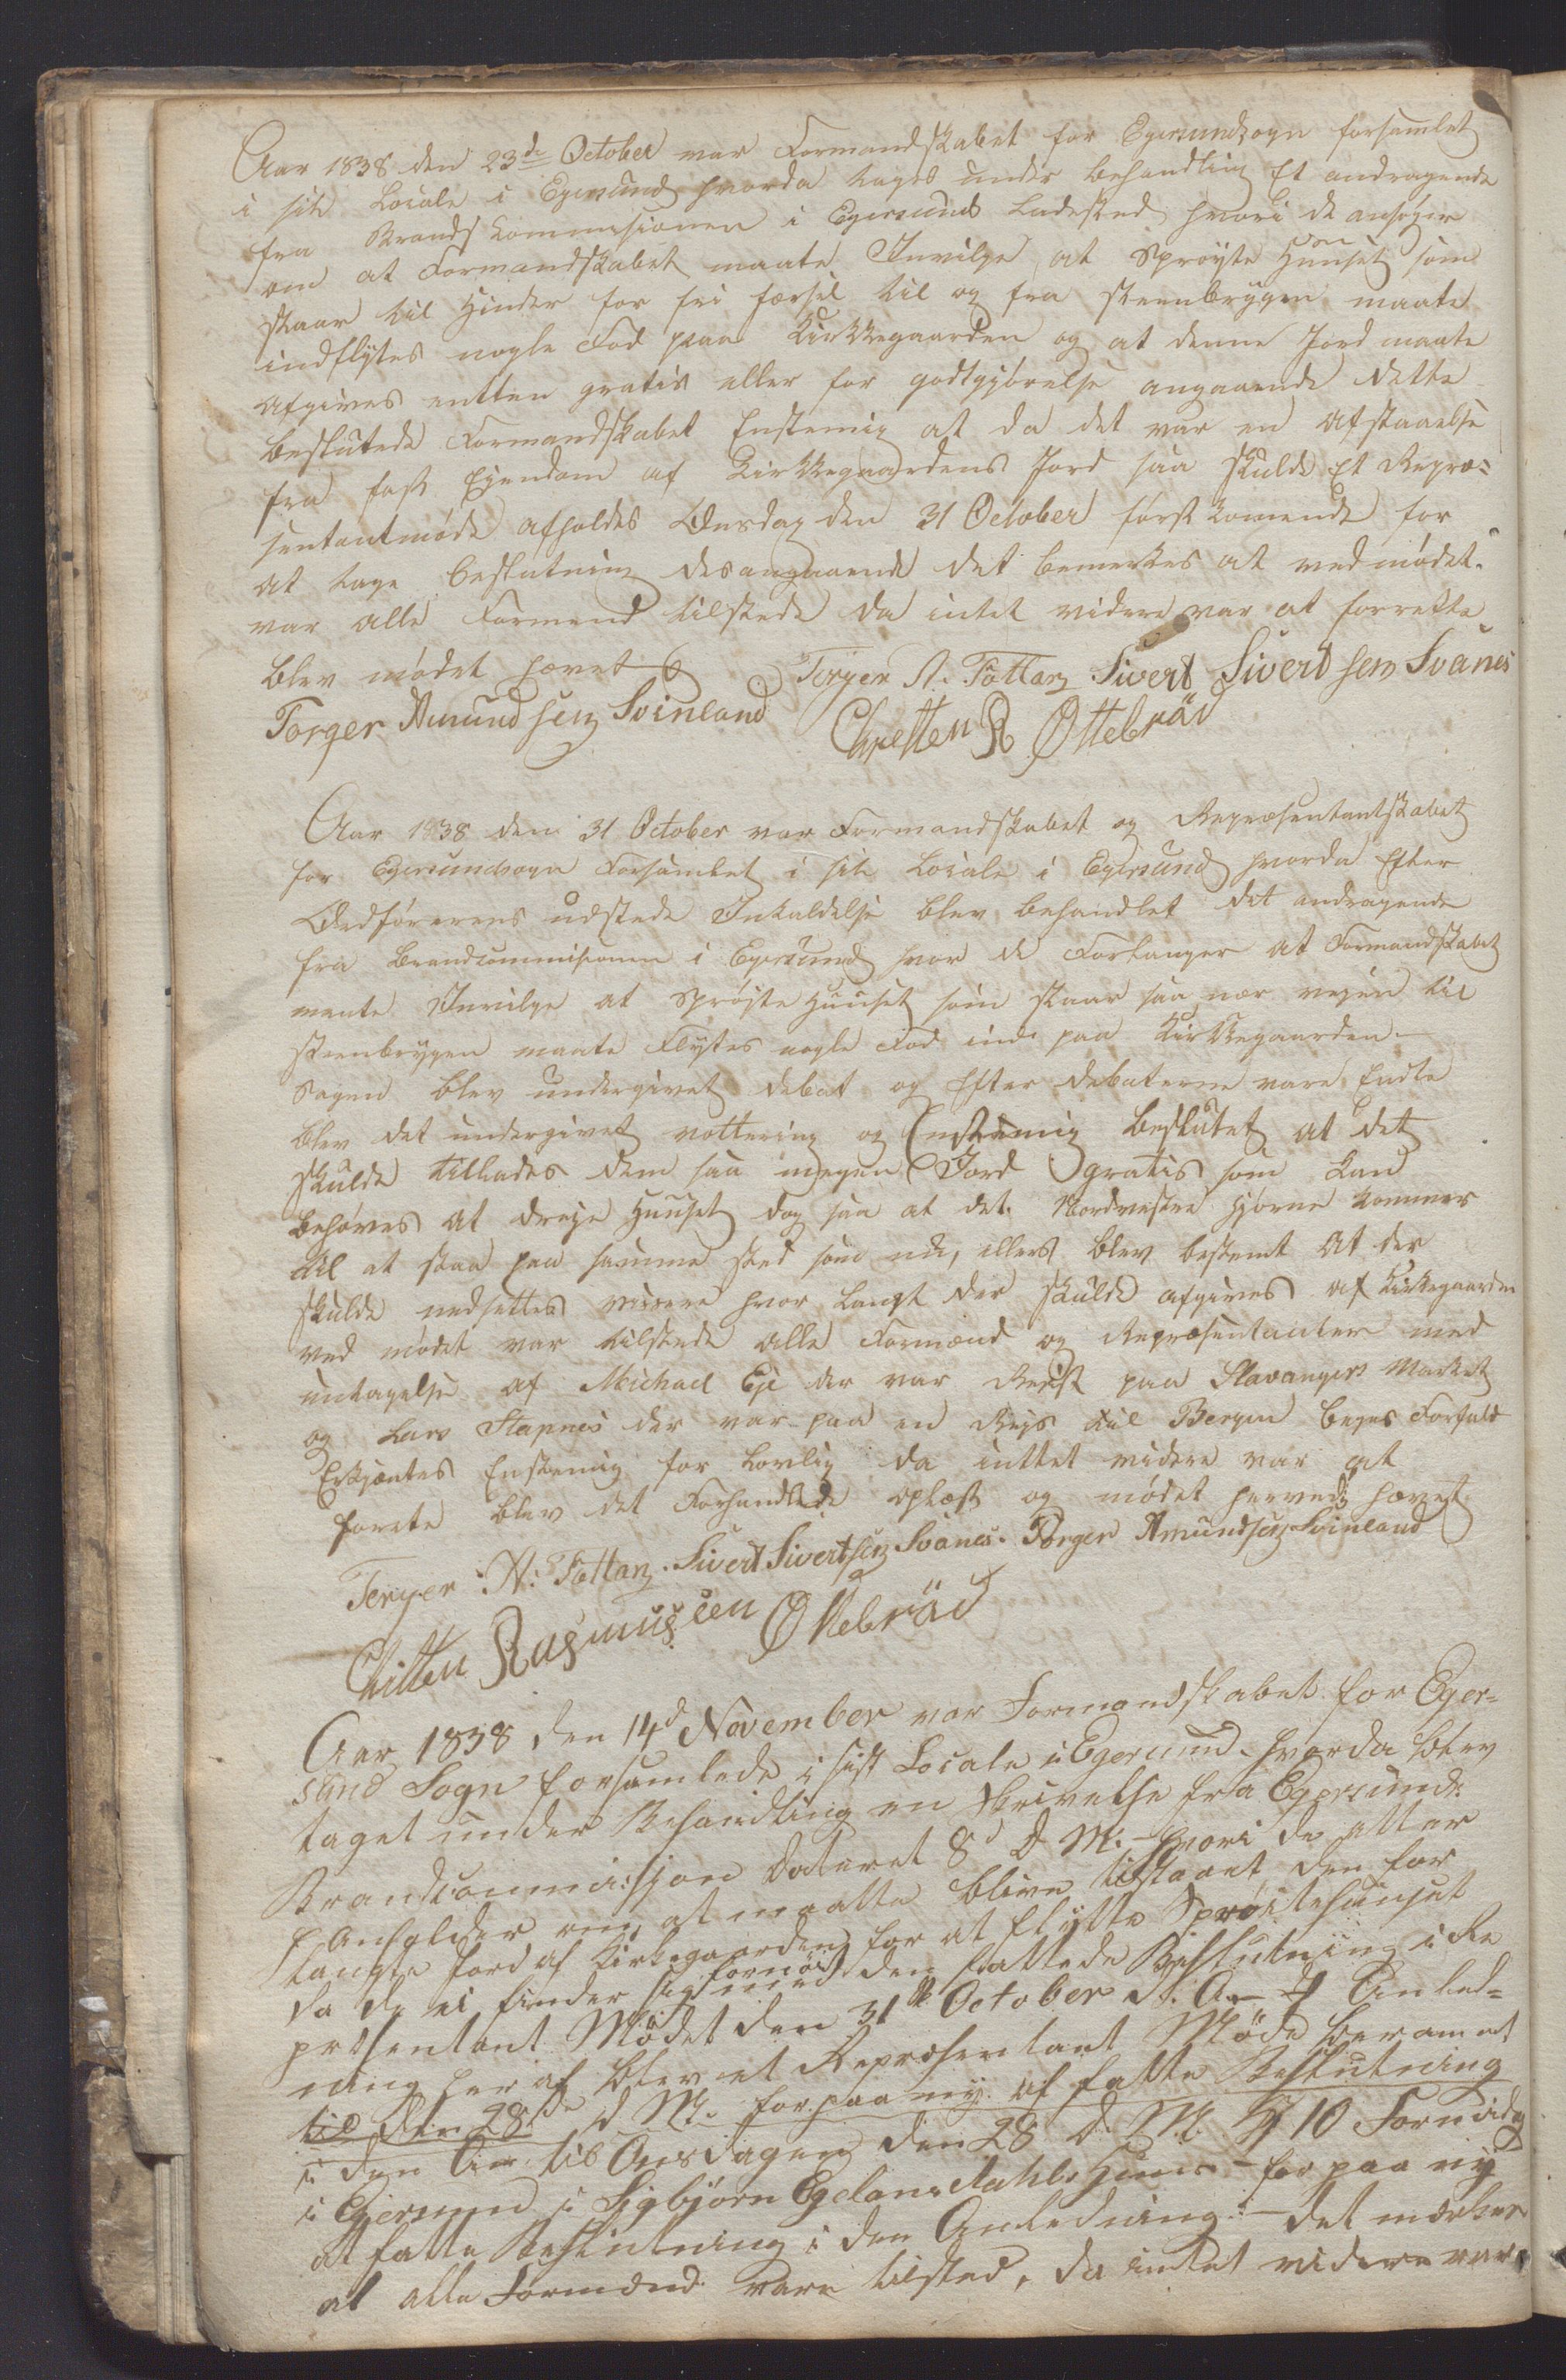 Aar 1838 den 23de October var Formandskabet for Egersundsogn forsamlet
i sit Locale i Egersund hvorda toges under behandling Et andragende
fra Brands Commisionen i Egersunds Ladested hvori de ansøger
om at Formandskabet maate Invilge at Sprøyte Huuset som
staar til Hinder for fri færsel til og fra steenbrygen maate
indflytes nogle Fod paa Kirkkegaarden og at denne Jord maate
afgives entten gratis eller for godtgjørelse angaaende dette
beslutede Formandskabet Enstemig at da det var en afstaaelse
fra fast Ejendom af Kirkkegaardens Jord saa skulde Et Repræ=
sentantmøde afholdes Onsdag den 31 October først komende for
at tage beslutning desangaaende det bemerkes at ved mødet
var alle Formend tilstede da intet videre var at forrette
blev mødet hævet
Terjer N. Tøttan Sivert Sivertsen Svanes
Torger Amundsen Svinland Chresten R Ottebräd
Aar 1838 den 31 October var Formandskabet og Repræsentantskabet
for Egersundsogn Forsamlet i sit Locale i Egersund hvorda Efter
Ordførerens udstede Inkaldelse blev behandlet det andragende
fra Brandcommisionen i Egersund hvor de Forlanger at Formandskabet
maate Invilge at Sprøjte Huuset som staar saa nær vejen til
steenbrygen maate Flytes nogle Fod ind paa Kirkkegaarden
Sagen blev undergivet debat og Efter debaterne vare Endte
blev det undergivet vottering og Enstemig Beslutet at det
skulde tillades dem saa megen Jord gratis som kan
behøves at dreje Huuset dog saa at det Nordvestre Hjørne kommer
til at staa paa samme sted som nu, ellers blev bestemt at der
skulde nedsettes misere hvor Langt der skulde afgives af Kirkegaarden
ved mødet var tilstede alle Formænd og Repræsentanter med
untagelse af Michael Eje der var Rejst paa Stavanger Marked
og Lars Stapnes der var paa en Rejs til Bergen beges Forfald
Erkjentes Enstemig for Lovlig da inttet videre var at
forrete blev det Forhandlede oplæst og mødet herved hævet
Terjer N. Tøttan. Sivert Sivertsen Svanes. Torger Amundsen Svinland
Christen Rasmussen Ottebräd
Aar 1838 den 14d November var Formandskabet for Eger=
sund Sogn forsamlede i sist Locale i Egersund. hvorda blev
taget under Behandling en Skrivelse fra Egersunds
Brandcommisjon dateret 8d D. M. - hvori de atter
anholder om at maatte blive tilstaaet den for
langte Jord af Kirkegaarden for at flytte Sprøitehuuset
da de ei finder sig fornøiet med den fattede Beslutning i Re
presentant Mödet den 31te October d. A. - I Anled=
ning her af blev et Repræsentant Möde berammet
til den 28de d. M. for paa ny at fatte Beslutning
i den An til Onsdagen den 28 D. M. Kl 10 Formidag
i Egersund i Sigbjörn Egelandsdahls Huus - for paa ny
at fatte Beslutning i den Anledning: - det mærkes
at alle Formænd vare tilsted, da intet videre var